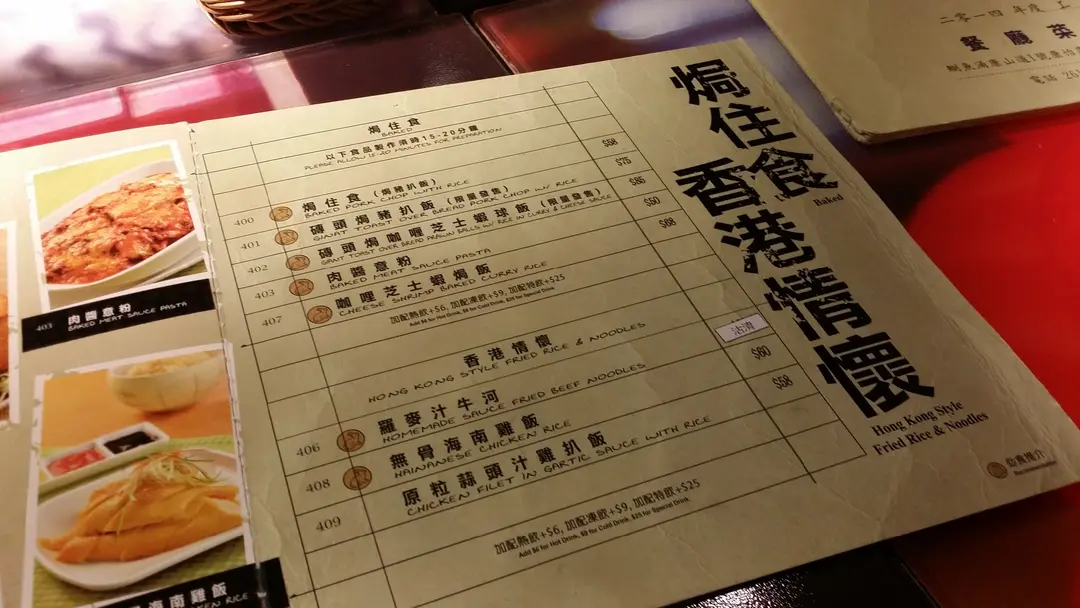 403 肉醬意粉
BAKED MEAT SAUCE PASTA
海南雞飯
焗住食
BAKED
以下食品製作需時15-20分鐘
PLEASE ALLOW 15-20 MINUTES FOR PREPARATION
400 焗住食 (焗豬扒飯) $58
BAKED PORK CHOP WITH RICE
401 磚頭焗豬扒飯 (限量發售) $75
GINAT TOAST OVER BREAD PORK CHOP W/ RICE
402 磚頭焗咖喱芝士蝦球飯 (限量發售) $85
GIANT TOAST OVER BREAD PRAWN BALLS W/ RICE IN CURRY & CHEESE SAUCE
403 肉醬意粉 $50
BAKED MEAT SAUCE PASTA
407 咖哩芝士蝦焗飯 $68
CHEESE SHRIMP BAKED CURRY RICE
加配熱飲+$6, 加配凍飲+$9, 加配特飲+$25
Add $6 for Hot Drink, $9 for Cold Drink, $25 for Special Drink
香港情懷
HONG KONG STYLE FRIED RICE & NOODLES
406 羅麥汁牛河 沽清
HOMEMADE SAUCE FRIED BEEF NOODLES
408 無骨海南雞飯 $60
HAINANESE CHICKEN RICE
409 原粒蒜頭汁雞扒飯 $58
CHICKEN FILET IN GARTIC SAUCE WITH RICE
加配熱飲+$6, 加配凍飲+$9, 加配特飲+$25
Add $6 for Hot Drink, $9 for Cold Drink, $25 for Special Drink
焗住食
Baked
香港情懷
Hong Kong Style
Fried Rice & Noodles
二零一四年度
餐廳菜
電話